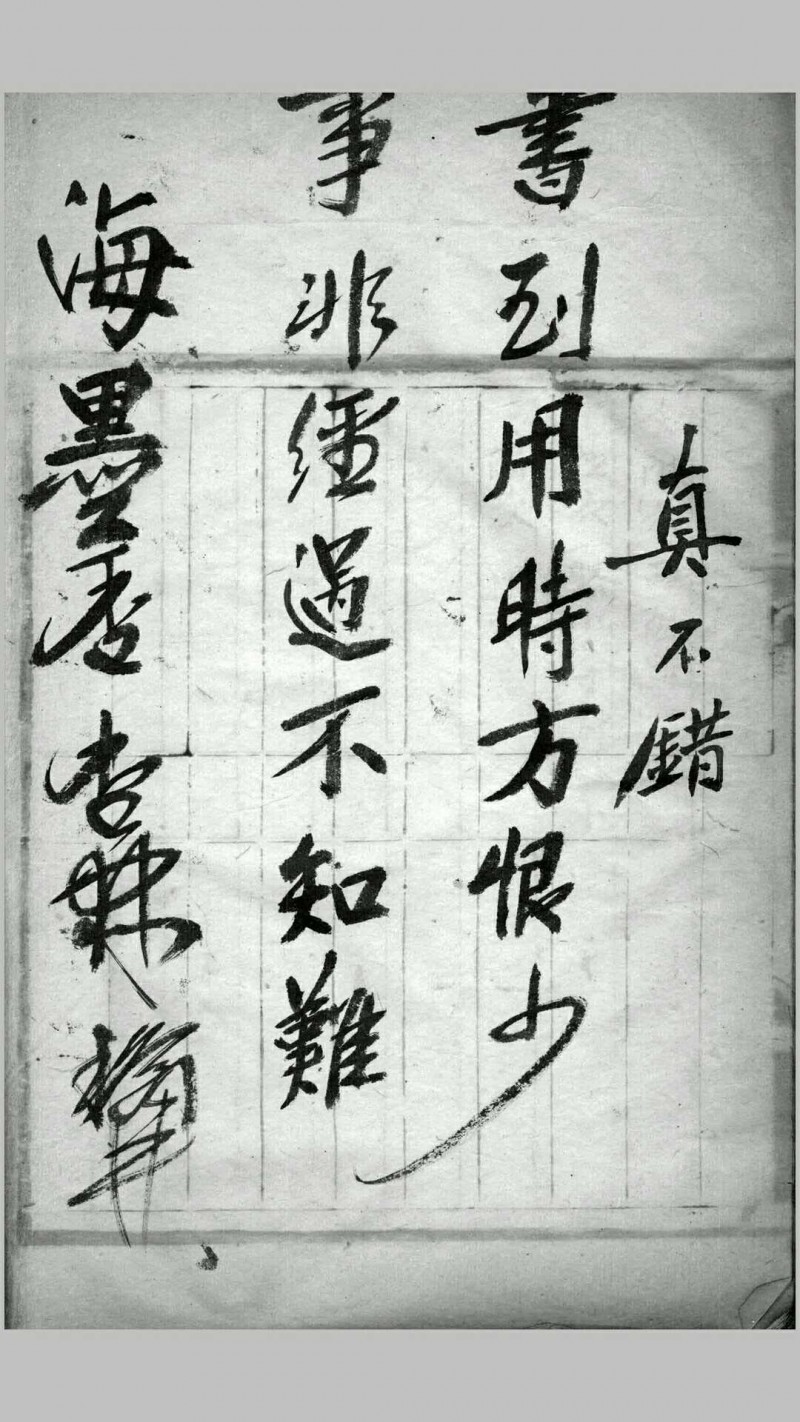 真不錯
書到用時方恨少
事非經過不知難
海墨香李